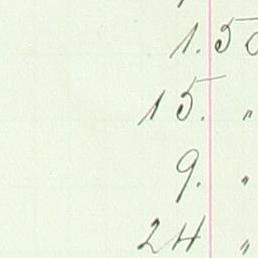 1.50
15. "
9. "
24 "